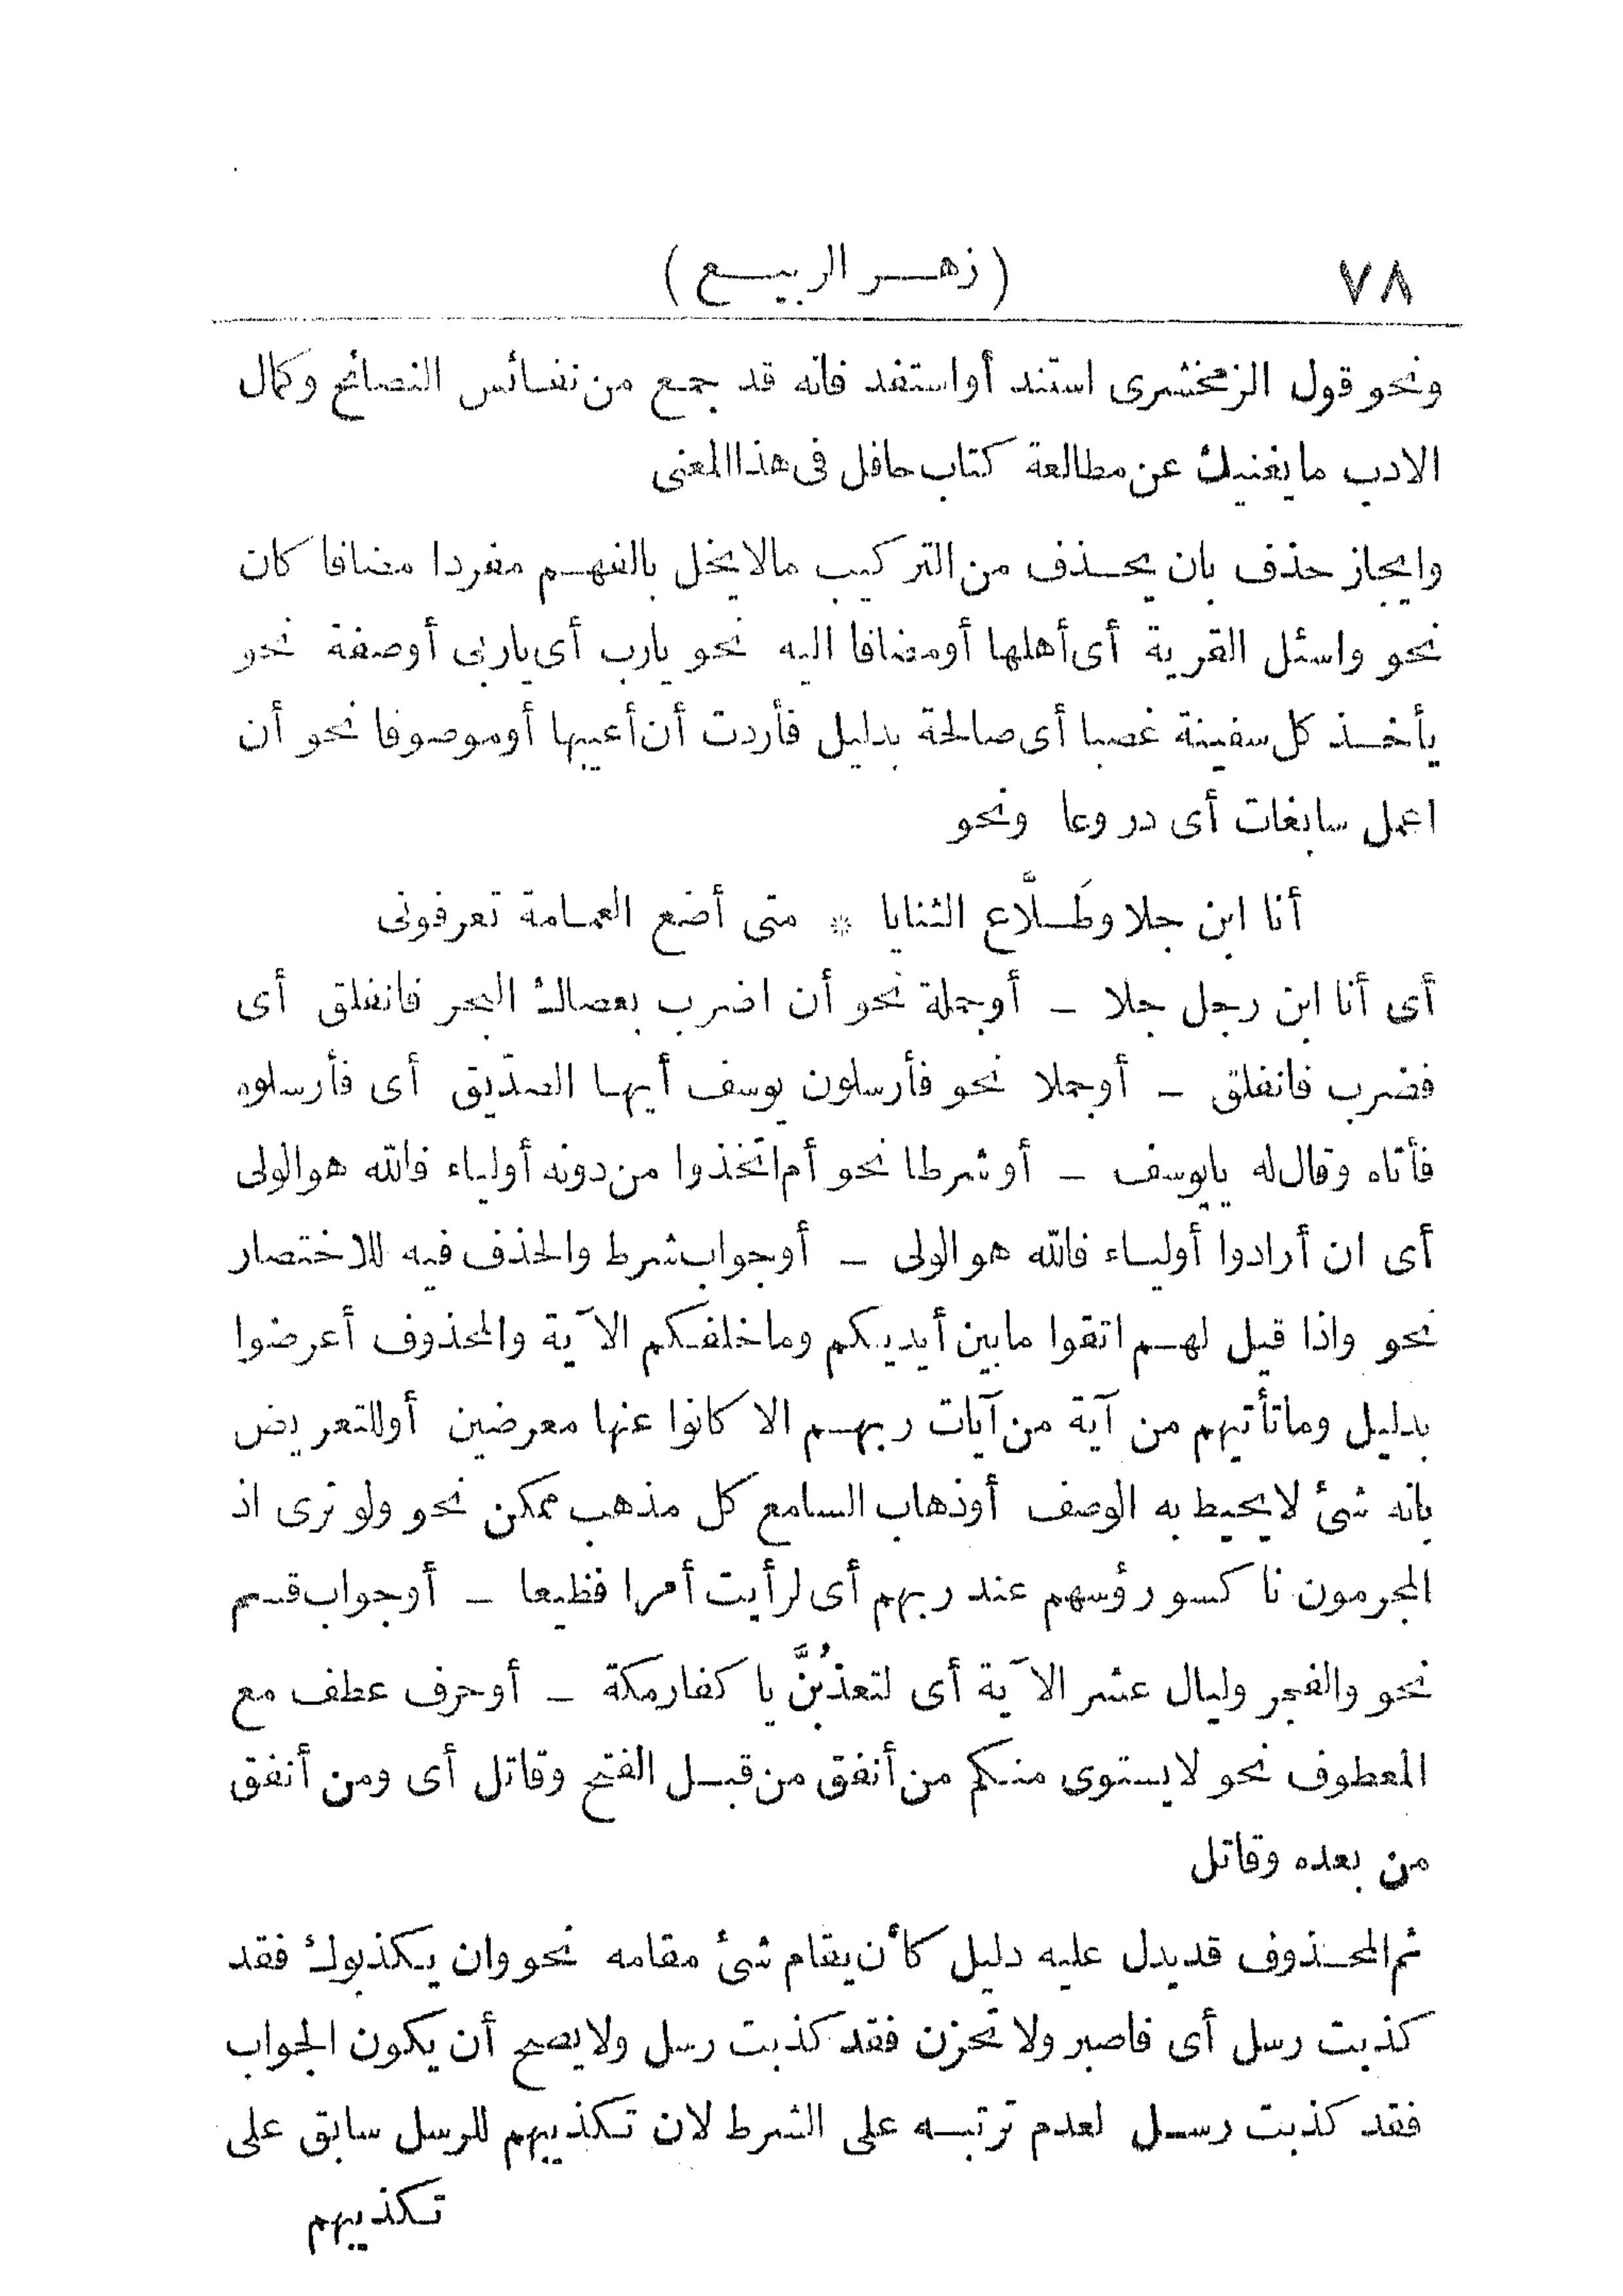 ٧٨ (زهر الربيع)
ونحو قول الزمخشرى استند أو استفد فانه قد جمع من نفائس النصائح وكمال
الادب ما يغنيك عن مطالعة كتاب حافل فى هذا المعنى
وايجاز حذف بان يحذف من التركيب مالا يخل بالفهم مفردا مضافا كان
نحو واسئل القرية أى أهلها أو مضافا اليه نحو يارب أى ياربى أو صفة نحو
يأخذ كل سفينة غصبا أى صالحة بدليل فأردت أن أعيبها أو موصوفا نحو أن
اعمل سابغات أى دروعا ونحو
أنا ابن جلا وطَلَّاع الثنايا * متى أضع العمامة تعرفونى
أى أنا ابن رجل جلا ـ أو جملة نحو أن اضرب بعصاك البحر فانفلق أى
فضرب فانفلق ـ أو جملا نحو فأرسلون يوسف أيها الصدّيق أى فأرسلوه
فأتاه وقال له يايوسف ـ أو شرطا نحو أم اتخذوا من دونه أولياء فالله هو الولى
أى ان أرادوا أولياء فالله هو الولى ـ أو جواب شرط والحذف فيه للاختصار
نحو واذا قيل لهم اتقوا ما بين أيديكم وما خلفكم الآية والمحذوف أعرضوا
بدليل وما تأتيهم من آية من آيات ربهم الا كانوا عنها معرضين أو للتعريض
بانه شئ لا يحيط به الوصف أو ذهاب السامع كل مذهب ممكن نحو ولو ترى اذ
المجرمون ناكسو رؤسهم عند ربهم أى لرأيت أمرا فظيعا ـ أو جواب قسم
نحو والفجر وليال عشر الآية أى لتعذبُنَّ يا كفار مكة ـ أو حرف عطف مع
المعطوف نحو لا يستوى منكم من أنفق من قبل الفتح وقاتل أى ومن أنفق
من بعده وقاتل
ثم المحذوف قد يدل عليه دليل كأن يقام شئ مقامه نحو وان يكذبوك فقد
كذبت رسل أى فاصبر ولا تحزن فقد كذبت رسل ولا يصح أن يكون الجواب
فقد كذبت رسل لعدم ترتبه على الشرط لان تكذيبهم للرسل سابق على
تكذيبهم